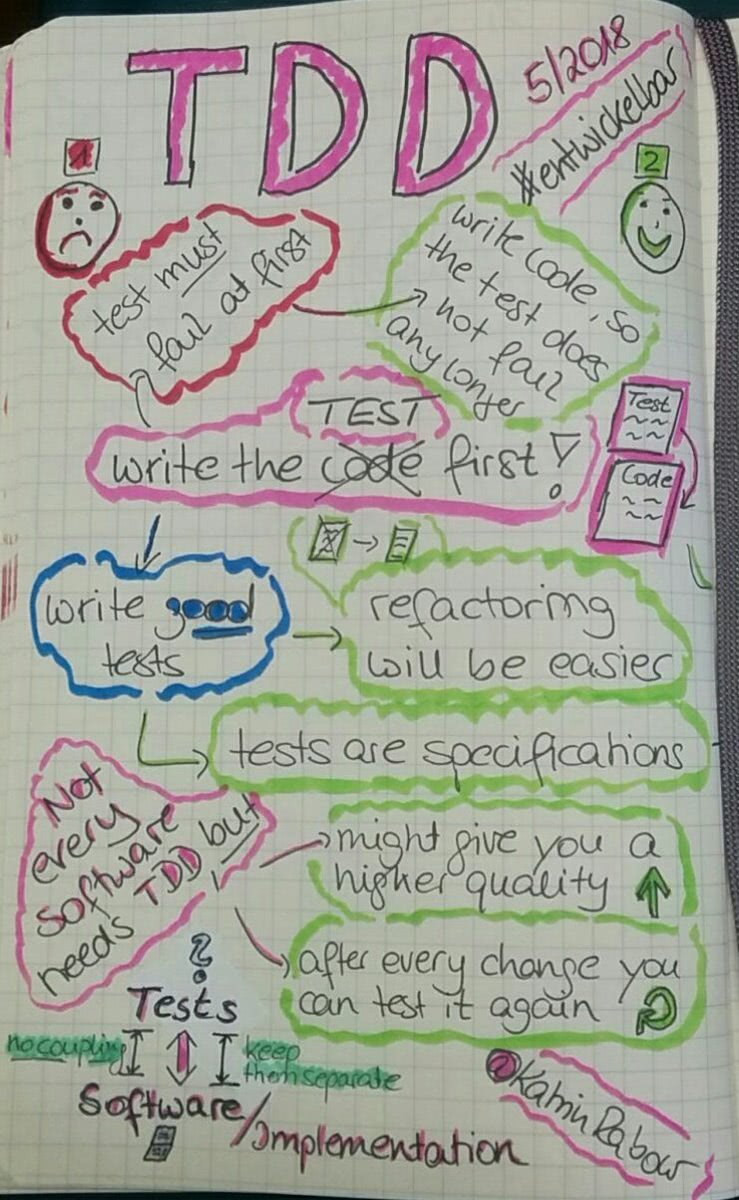 TDD
5/2018
#entwickelbar
1
2
test must
fail at first
write code, so
the test does
not fail
any longer
TEST
write the code first!
Test
Code
write good
tests
refactoring
will be easier
tests are specifications
Not
every
Software
needs TDD but
might give you a
higher quality
after every change you
can test it again
?
Tests
no coupling
keep
them separate
Software/
Implementation
@KatrinRabow